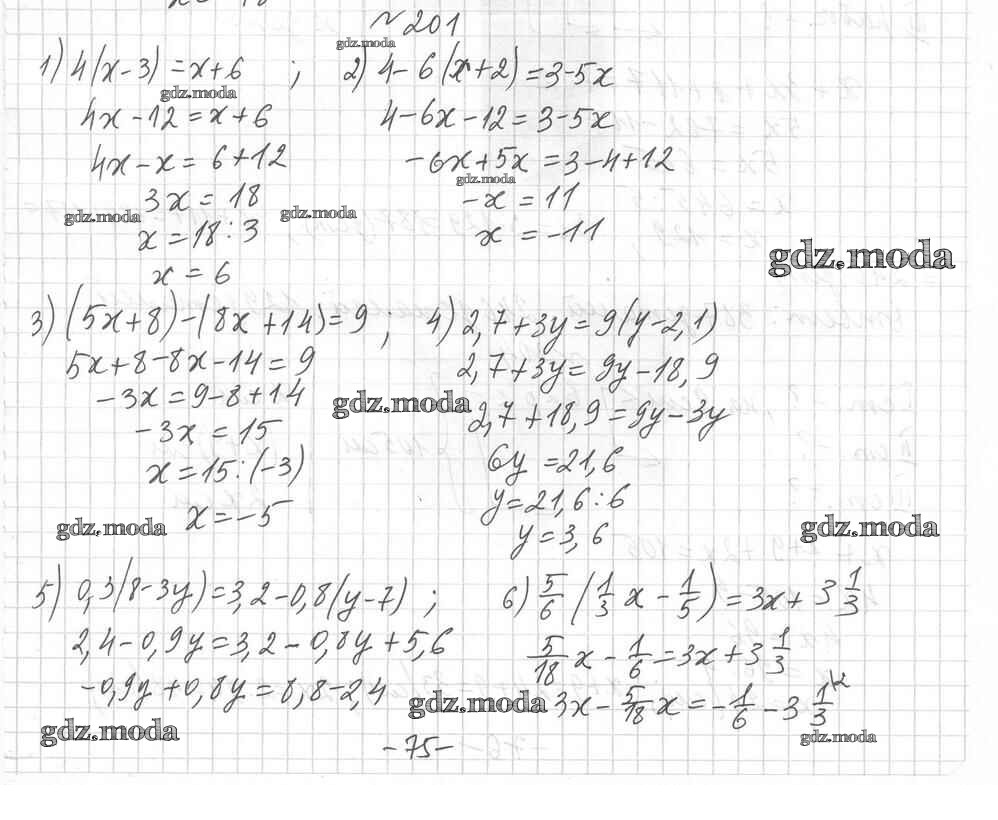 №201
1) 4(x-3)=x+6 ; 2) 4-6(x+2)=3-5x
4x-12=x+6 4-6x-12=3-5x
4x-x=6+12 -6x+5x=3-4+12
3x=18 -x=11
x=18:3 x=-11
x=6
3) (5x+8)-(8x+14)=9 ; 4) 2,7+3y=9(y-2,1)
5x+8-8x-14=9 2,7+3y=9y-18,9
-3x=9-8+14 2,7+18,9=9y-3y
-3x=15 6y=21,6
x=15:(-3) y=21,6:6
x=-5 y=3,6
5) 0,3(8-3y)=3,2-0,8(y-7) ; 6) 5/6 (1/3 x - 1/5) = 3x + 3 1/3
2,4-0,9y=3,2-0,8y+5,6 5/18 x - 1/6 = 3x + 3 1/3
-0,9y+0,8y=8,8-2,4 3x - 5/18 x = - 1/6 - 3 1/3 \2
-75-
gdz.moda
gdz.moda
gdz.moda
gdz.moda
gdz.moda
gdz.moda
gdz.moda
gdz.moda
gdz.moda
gdz.moda
gdz.moda
gdz.moda